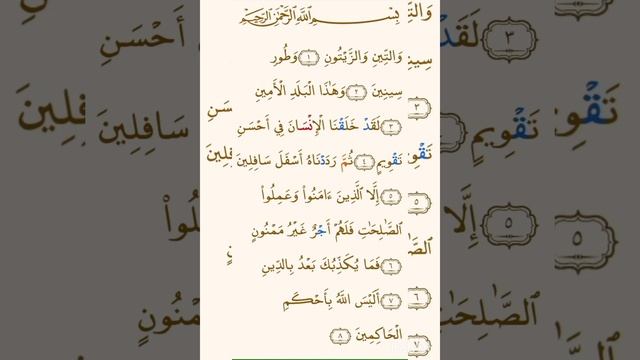 بِسْمِ ٱللَّهِ ٱلرَّحْمَٰنِ ٱلرَّحِيمِ
وَالتِّينِ وَالزَّيْتُونِ ١ وَطُورِ
سِينِينَ ٢ وَهَٰذَا الْبَلَدِ الْأَمِينِ
٣ لَقَدْ خَلَقْنَا الْإِنْسَانَ فِي أَحْسَنِ
تَقْوِيمٍ ٤ ثُمَّ رَدَدْنَاهُ أَسْفَلَ سَافِلِينَ
٥ إِلَّا ٱلَّذِينَ ءَامَنُوا۟ وَعَمِلُوا۟
ٱلصَّٰلِحَٰتِ فَلَهُمْ أَجْرٌ غَيْرُ مَمْنُونٍ
٦ فَمَا يُكَذِّبُكَ بَعْدُ بِالدِّينِ
٧ أَلَيْسَ اللَّهُ بِأَحْكَمِ
الْحَاكِمِينَ ٨